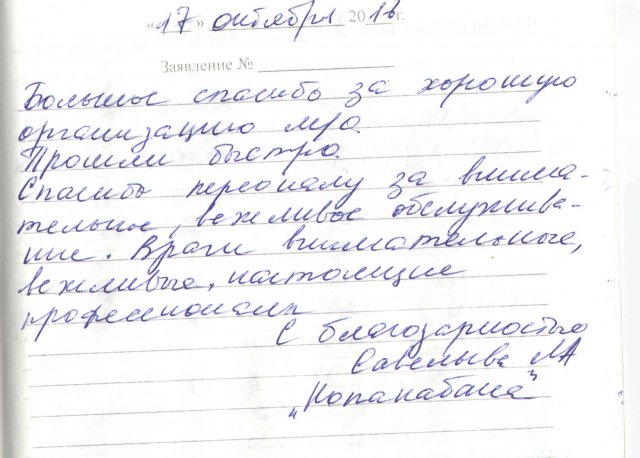 «17» октября 2016 г.
Заявление №
Большое спасибо за хорошую
организацию м/о.
Прошли быстро.
Спасибо персоналу за внима-
тельное, вежливое обслужива-
ние. Врачи внимательные,
вежливые, настоящие
профессионалы
С благодарностью
Савельева ЛА
"Копакабана"